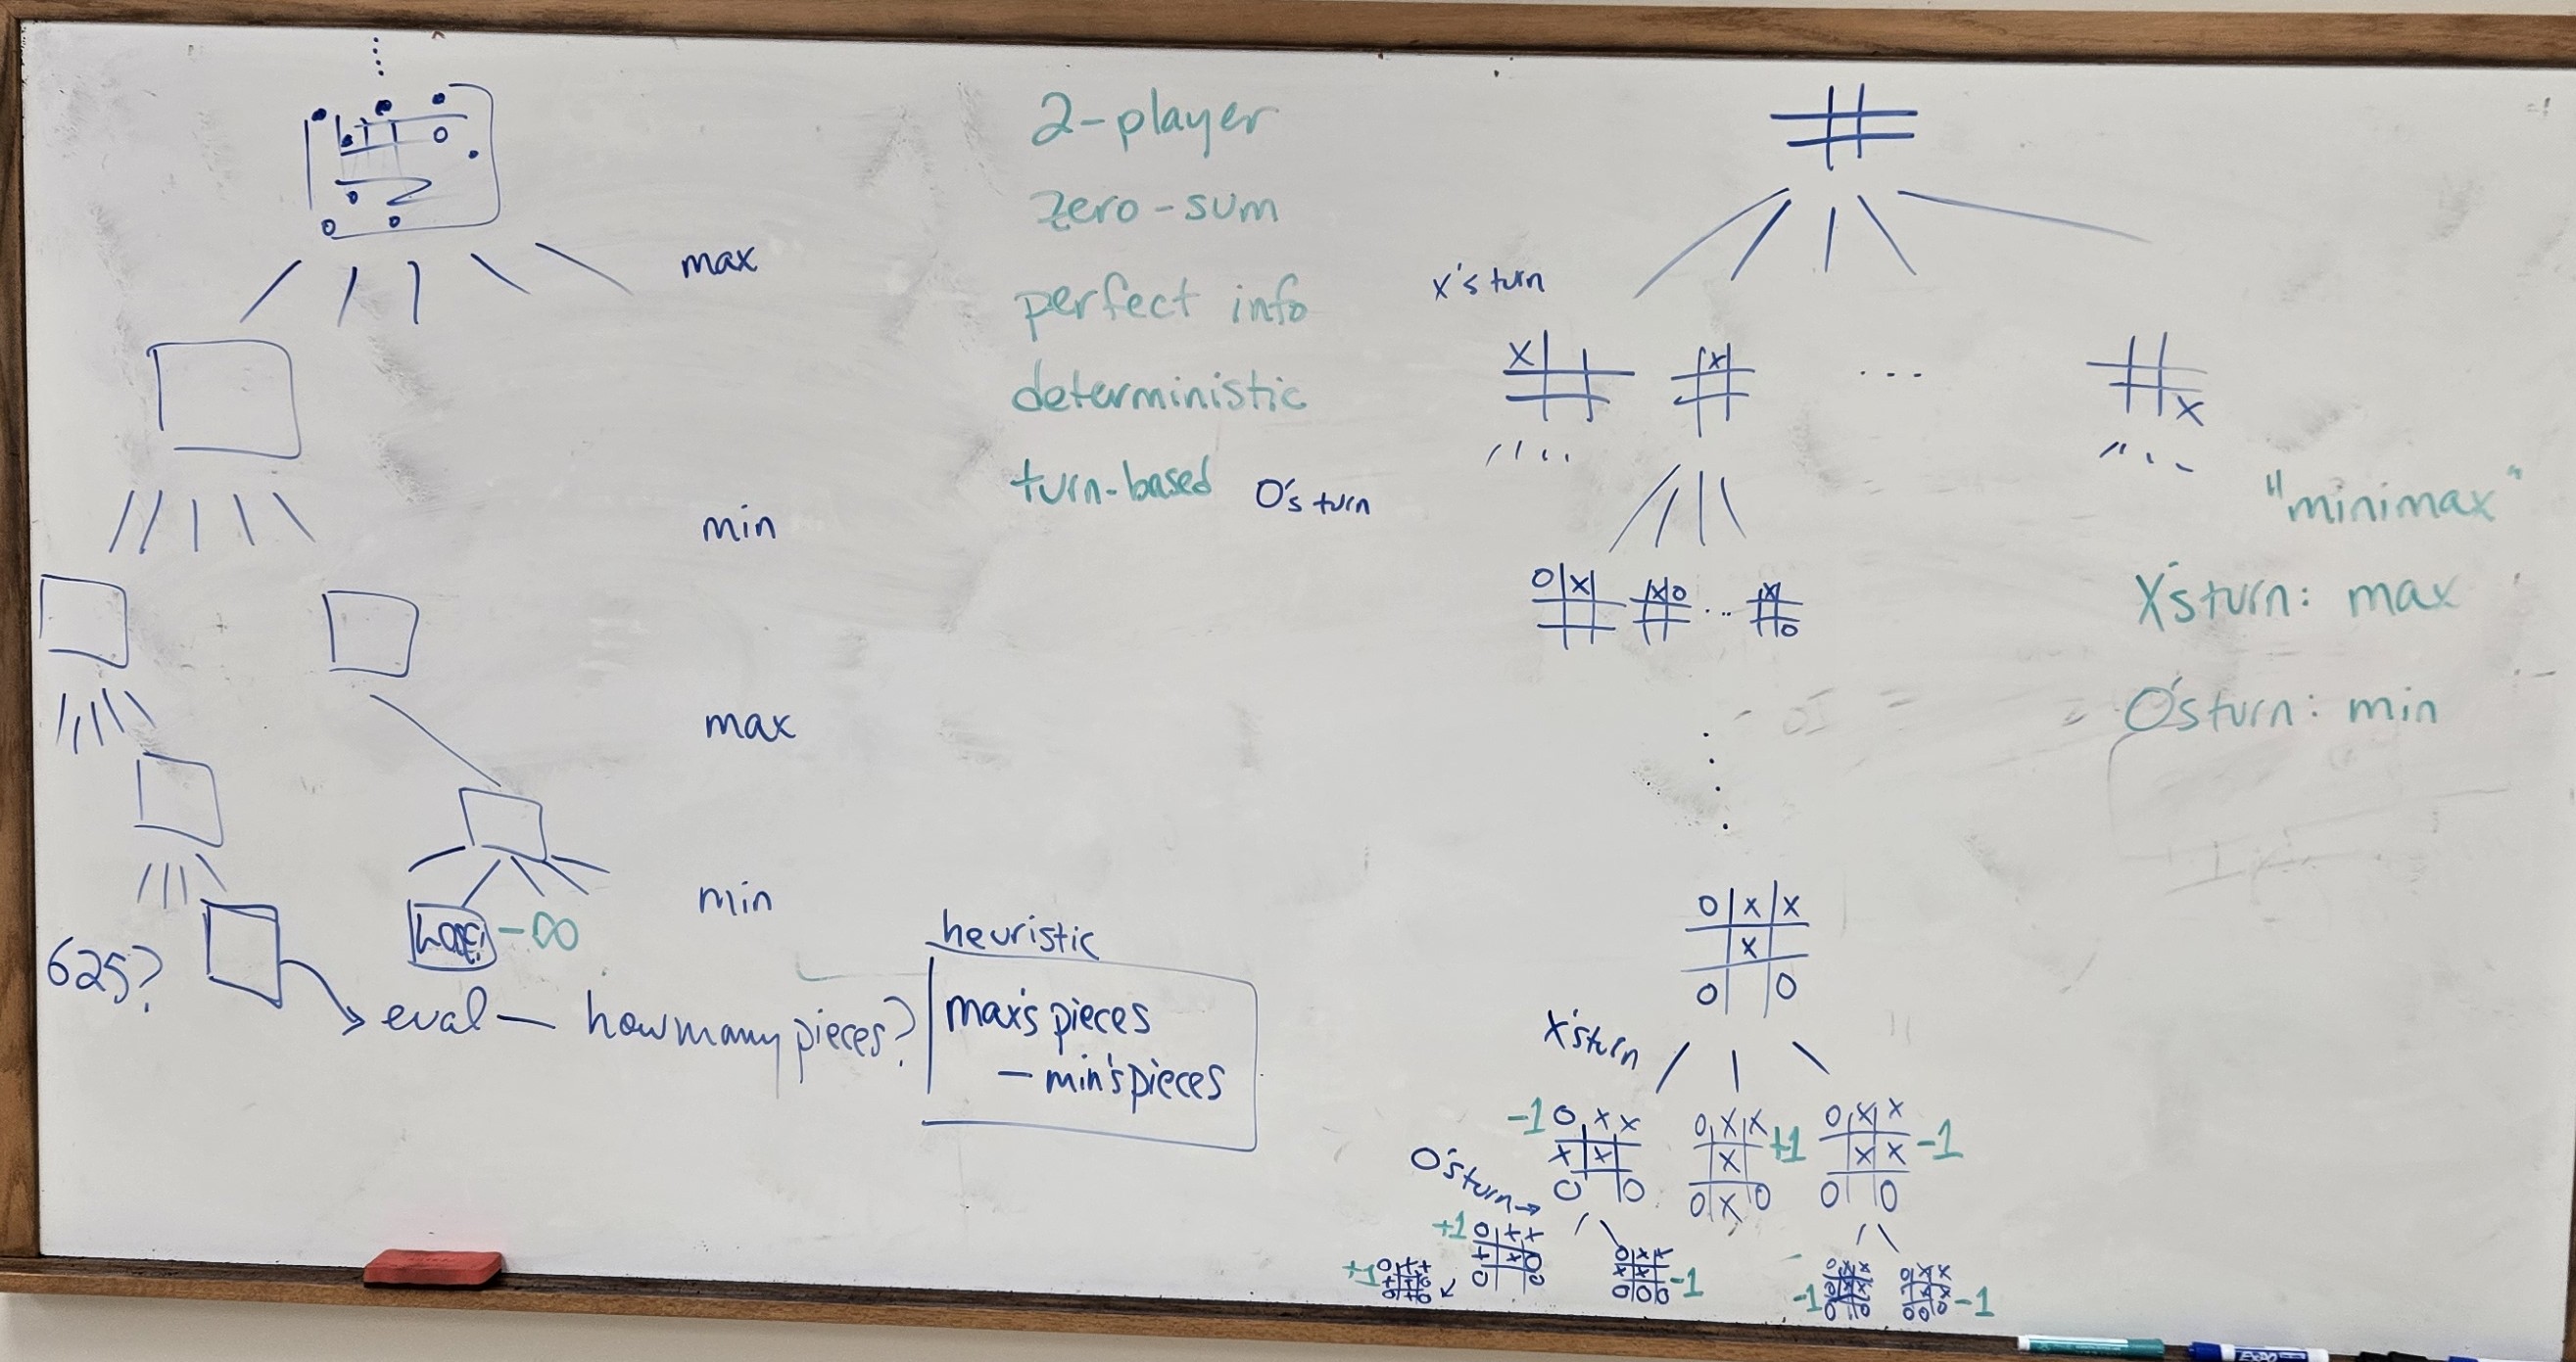 max
min
max
min
Lose!
-∞
625?
eval — how many pieces?
heuristic
max's pieces
— min's pieces
2-player
zero-sum
perfect info
deterministic
turn-based
X's turn
X
X
...
X
O's turn
O X
X O
...
X
O
"minimax"
X's turn: max
O's turn: min
O X X
X
O O
X's turn
-1
O X X
X X
O O
O X X
X
O X O
+1
O X X
X X
O O
-1
O's turn →
+1
O X X
X X O
O O
+1
O X X
X X
O O O
-1
-1
-1